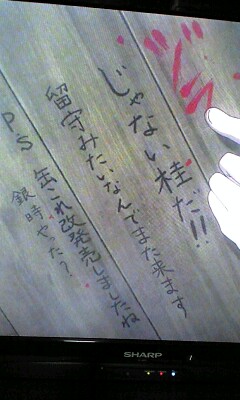 ヅラ
じゃない桂だ!!
留守みたいなんでまた来ます
PS 缶これ改発売しましたね
銀時やった?
SHARP